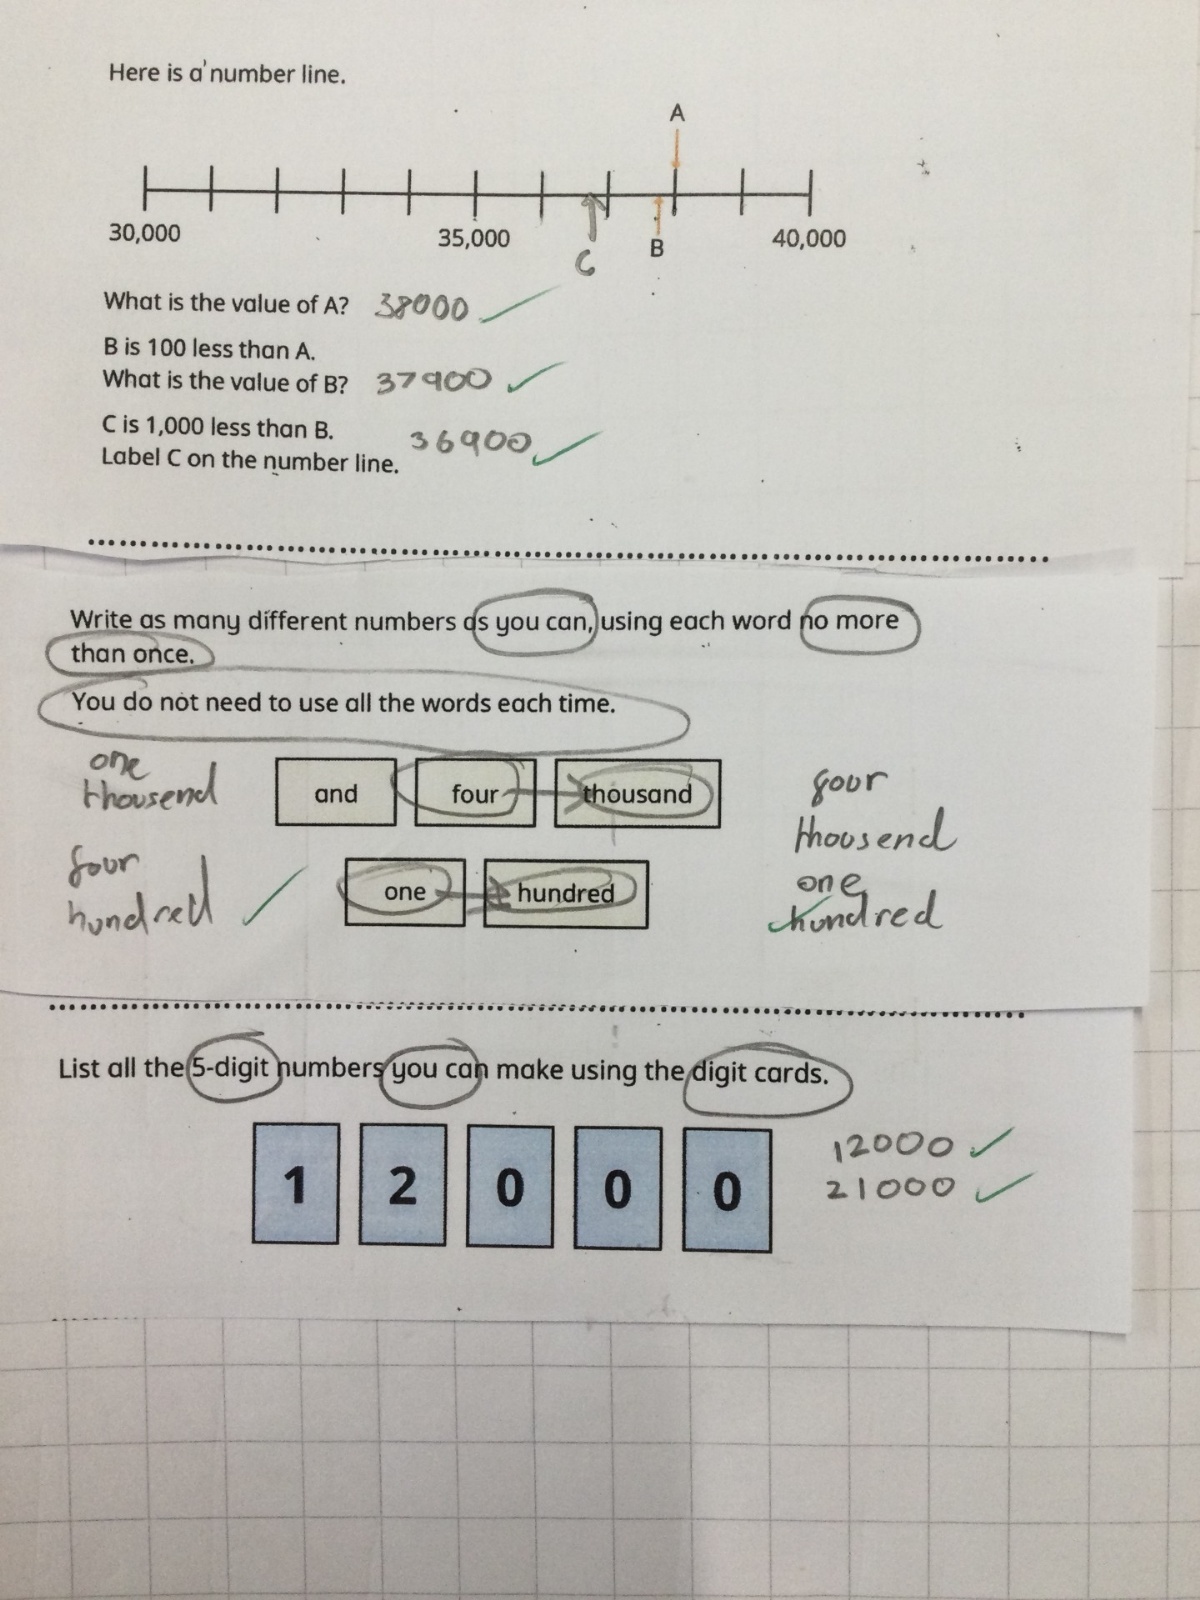 Here is a number line.
A
30,000 35,000 40,000
C B
What is the value of A? 38000
B is 100 less than A.
What is the value of B? 37900
C is 1,000 less than B. 36900
Label C on the number line.
Write as many different numbers as you can, using each word no more
than once.
You do not need to use all the words each time.
one
thousend
four
hundred
and four thousand
one hundred
four
thousend
one
hundred
List all the 5-digit numbers you can make using the digit cards.
1 2 0 0 0
12000
21000